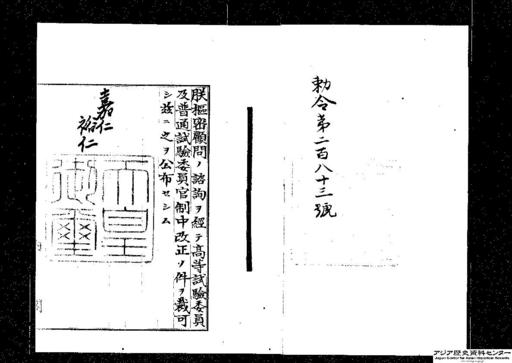 勅令第二百八十三號
朕樞密顧問ノ諮詢ヲ經テ高等試驗委員
及普通試驗委員官制中改正ノ件ヲ裁可
シ茲ニ之ヲ公布セシム
嘉仁
裕仁
天皇
御璽
アジア歴史資料センター
Japan Center for Asian Historical Records